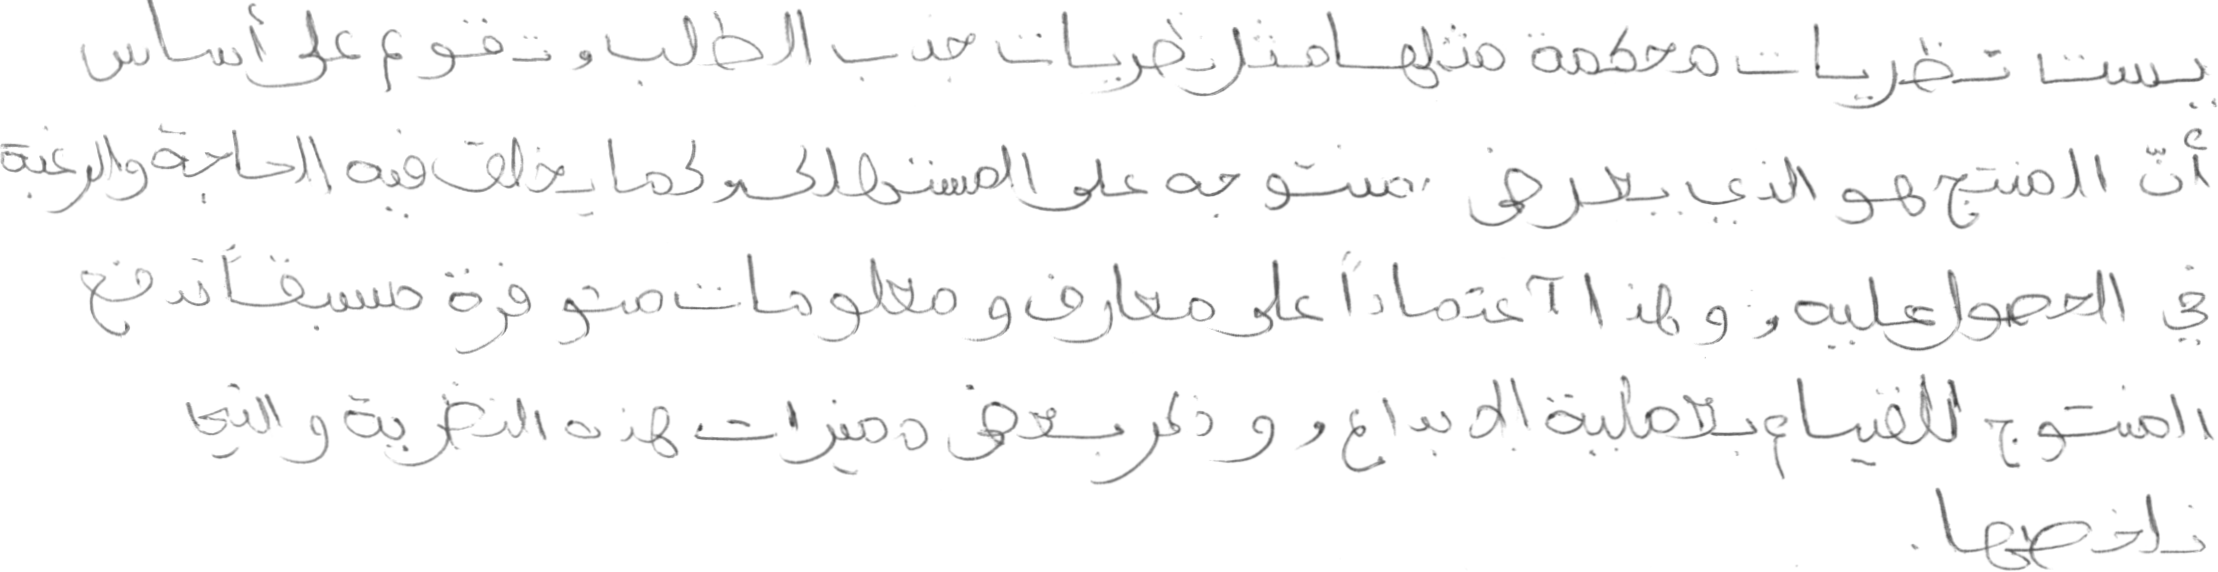 يست نظريات محكمة مثلها مثل نظريات جذب الطلب، وتقوم على أساس
أنّ المنتج هو الذي يعرض منتوجه على المستهلك، كما يخلق فيه الحاجة والرغبة
في الحصول عليه، وهذا اعتماداً على معارف ومعلومات متوفرة مسبقاً تدفع
المنتوج للقيام بعملية الإبداع، وذكر بعض مميزات هذه النظرية والتي
نلخصها.